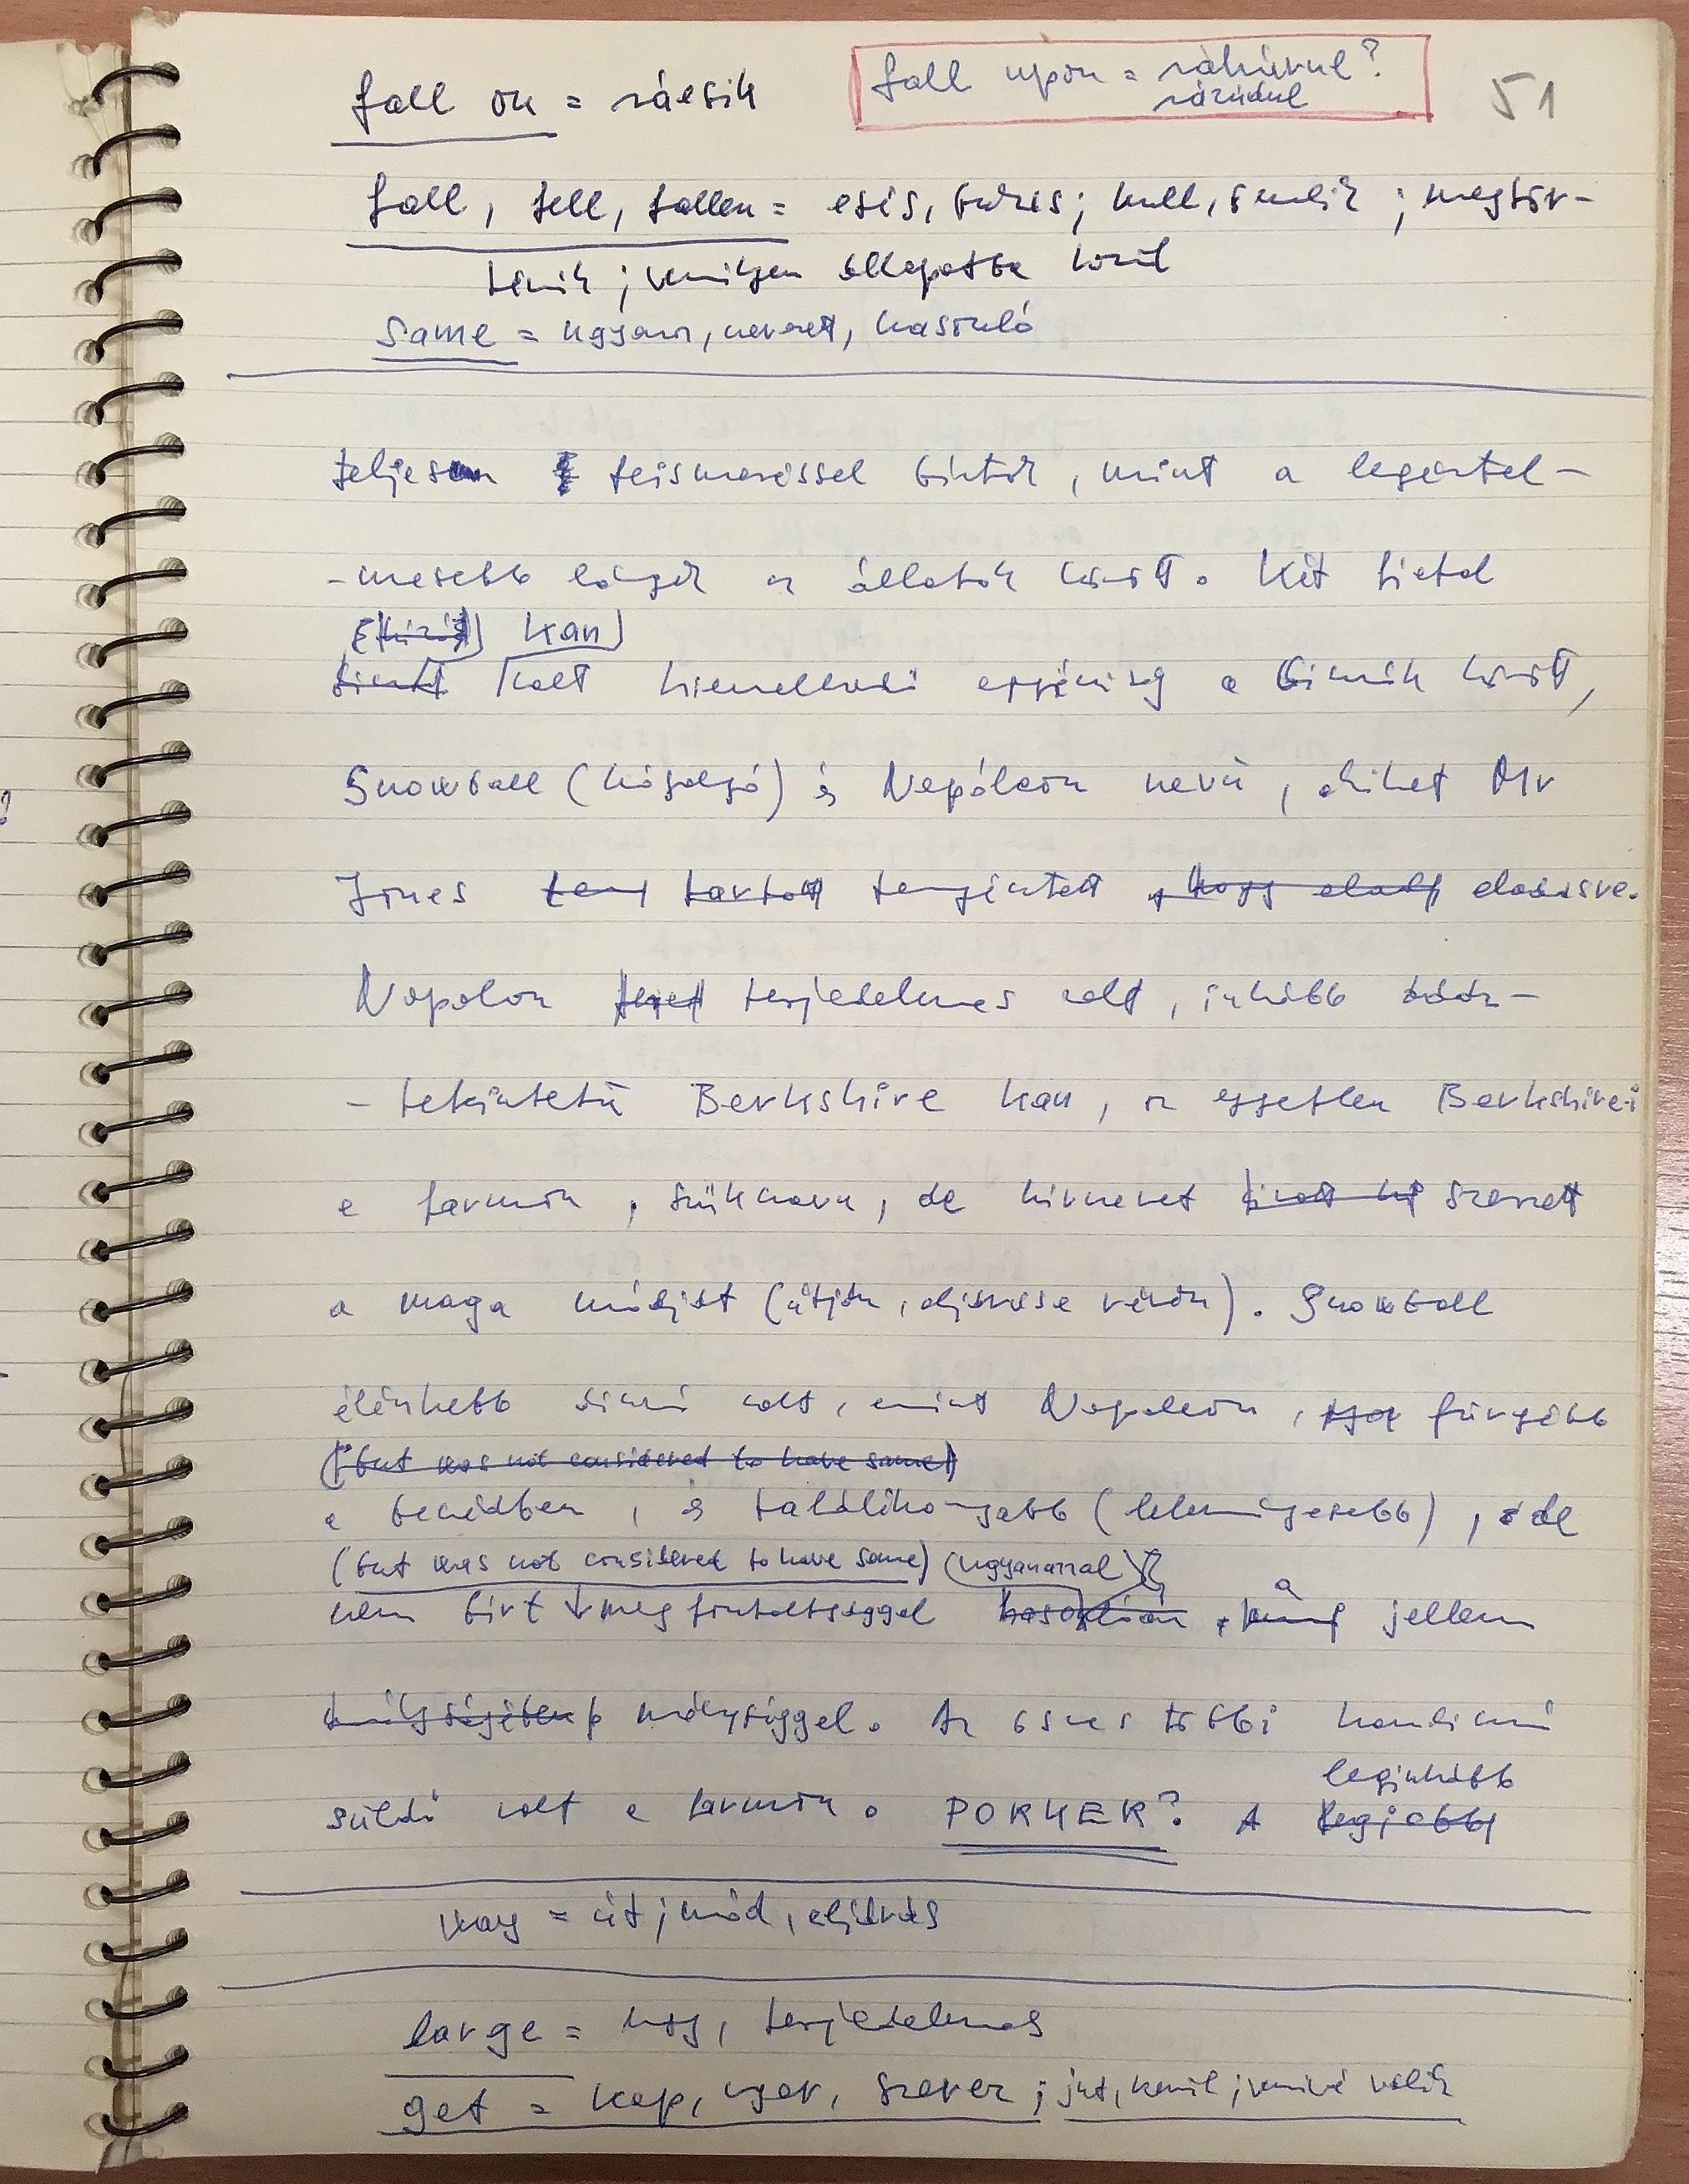 fall on = ráesik
fall upon = ráhárul?
rázúdul
51
fall, fell, fallen = esés, bukás; hull, ömlik; megtör-
ténik; vmilyen állapotba kerül
same = ugyanaz, nevezett, hasonló
teljesen felismeréssel bírtak, mint a legértel-
-mesebb lények az állatok között. Két fiatal
kan
volt kiemelkedő egyéniség a disznók között,
Snowball (hógolyó) és Napóleon nevű, akiket Mr
Jones teny tartott tenyésztett, hogy eladj eladásra.
Napoleon terjedelmes volt, inkább vadá-
-tekintetű Berkshire kan, az egyetlen Berkshire-i
a farmon, szűkszavú, de hírnevet szerzett
a maga módját (útján, eljárása révén). Snowball
élénkebb disznó volt, mint Napoleon, fürgébb
(but was not considered to have same)
a beszédben, és találékonyabb (leleményesebb), de
(but was not considered to have same) (ugyanazzal)
nem bírt megfontoltsággal hasonlóan, a jellem
mélységében mélységgel. Az összes többi kandisznó
leginkább
süldő volt a farmon. PORKER? A legjobb
way = út; mód, eljárás
large = nagy, terjedelmes
get = kap, nyer, szerez; jut, kerül; vmivé válik